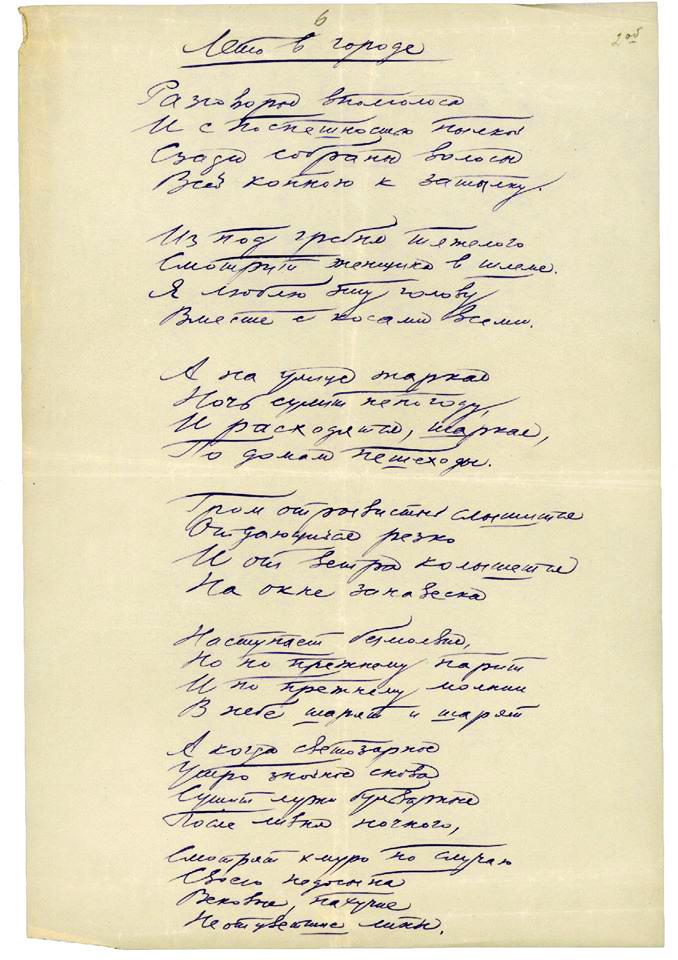 6
2об
Лето в городе
Разговоры вполголоса
И с поспешностью пылкой
Сзади собраны волосы
Всей копною к затылку.
Из под гребня тяжелого
Смотрит женщина в шлеме.
Я люблю эту голову
Вместе с косами всеми.
А на улице жаркая
Ночь сулит непогоду,
И расходятся, шаркая,
По домам пешеходы.
Гром отрывистый слышится
Отдающийся резко
И от ветра колышется
На окне занавеска
Наступает безмолвие,
Но по прежнему парит
И по прежнему молнии
В небе шарят и шарят
А когда светозарное
Утро знойное снова
Сушит лужи бульварные
После ливня ночного,
Смотрят хмуро по случаю
Своего недосыпа
Вековые, пахучие
Неотцветшие липы.